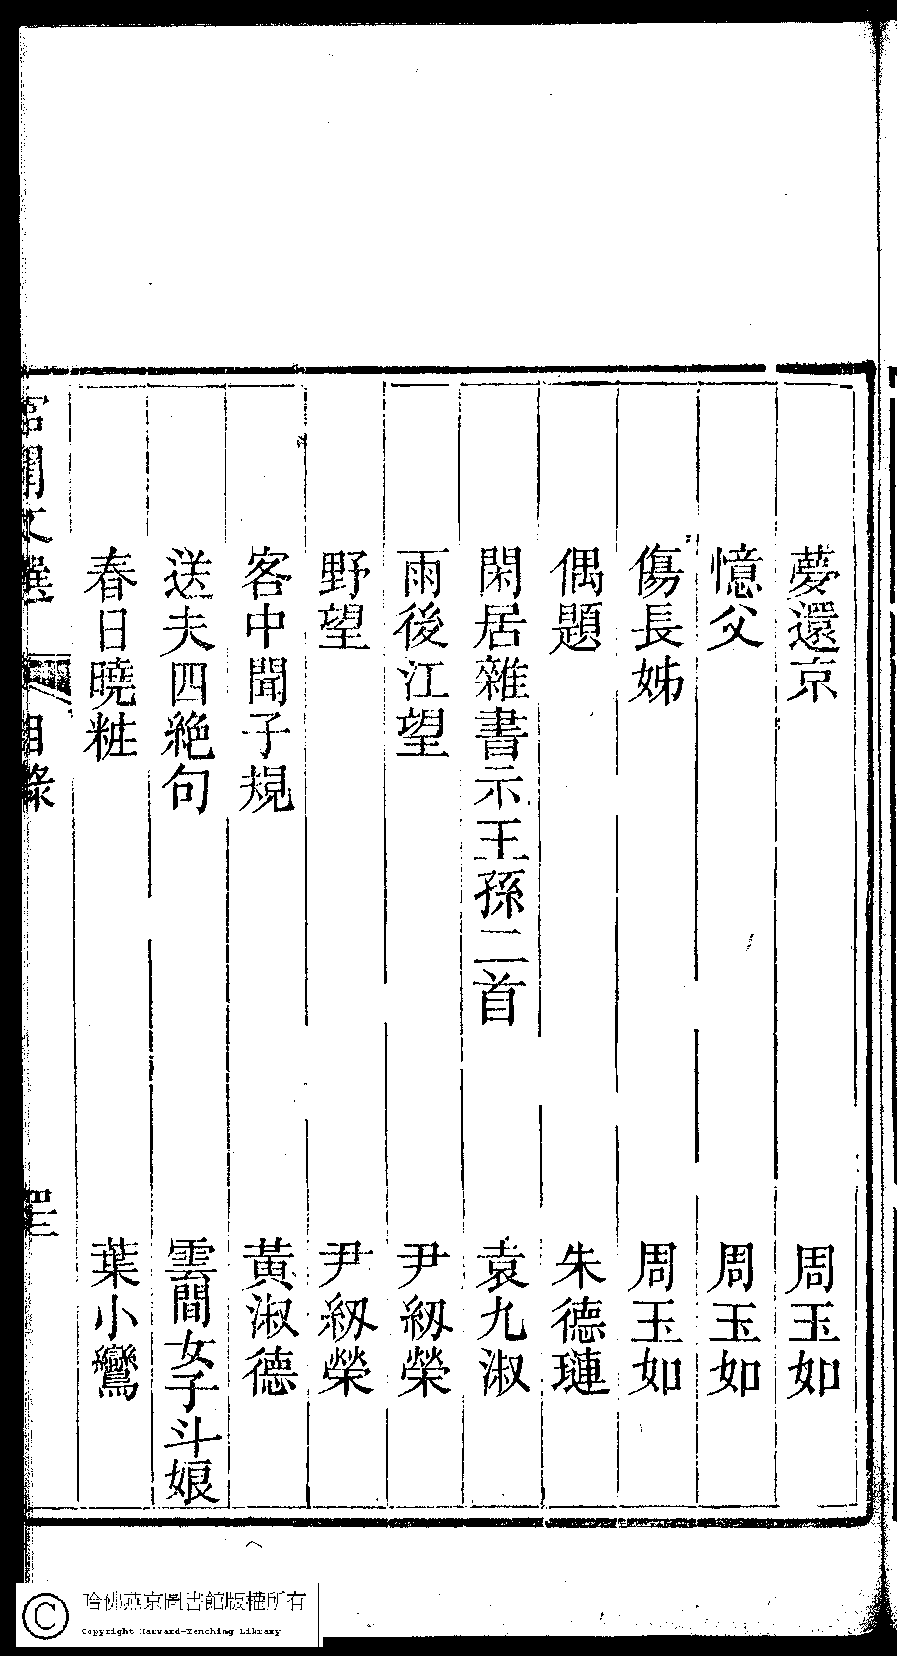 夢還京　周玉如
憶父　周玉如
傷長姊　周玉如
偶題　朱德璉
閑居雜書示王孫二首　袁九淑
雨後江望　尹紉榮
野望　尹紉榮
客中聞子規　黃淑德
送夫四絶句　雲間女子斗娘
春日曉粧　葉小鸞
宮閨文選　目錄
哈佛燕京圖書館版權所有
Copyright Harvard-Yenching Library